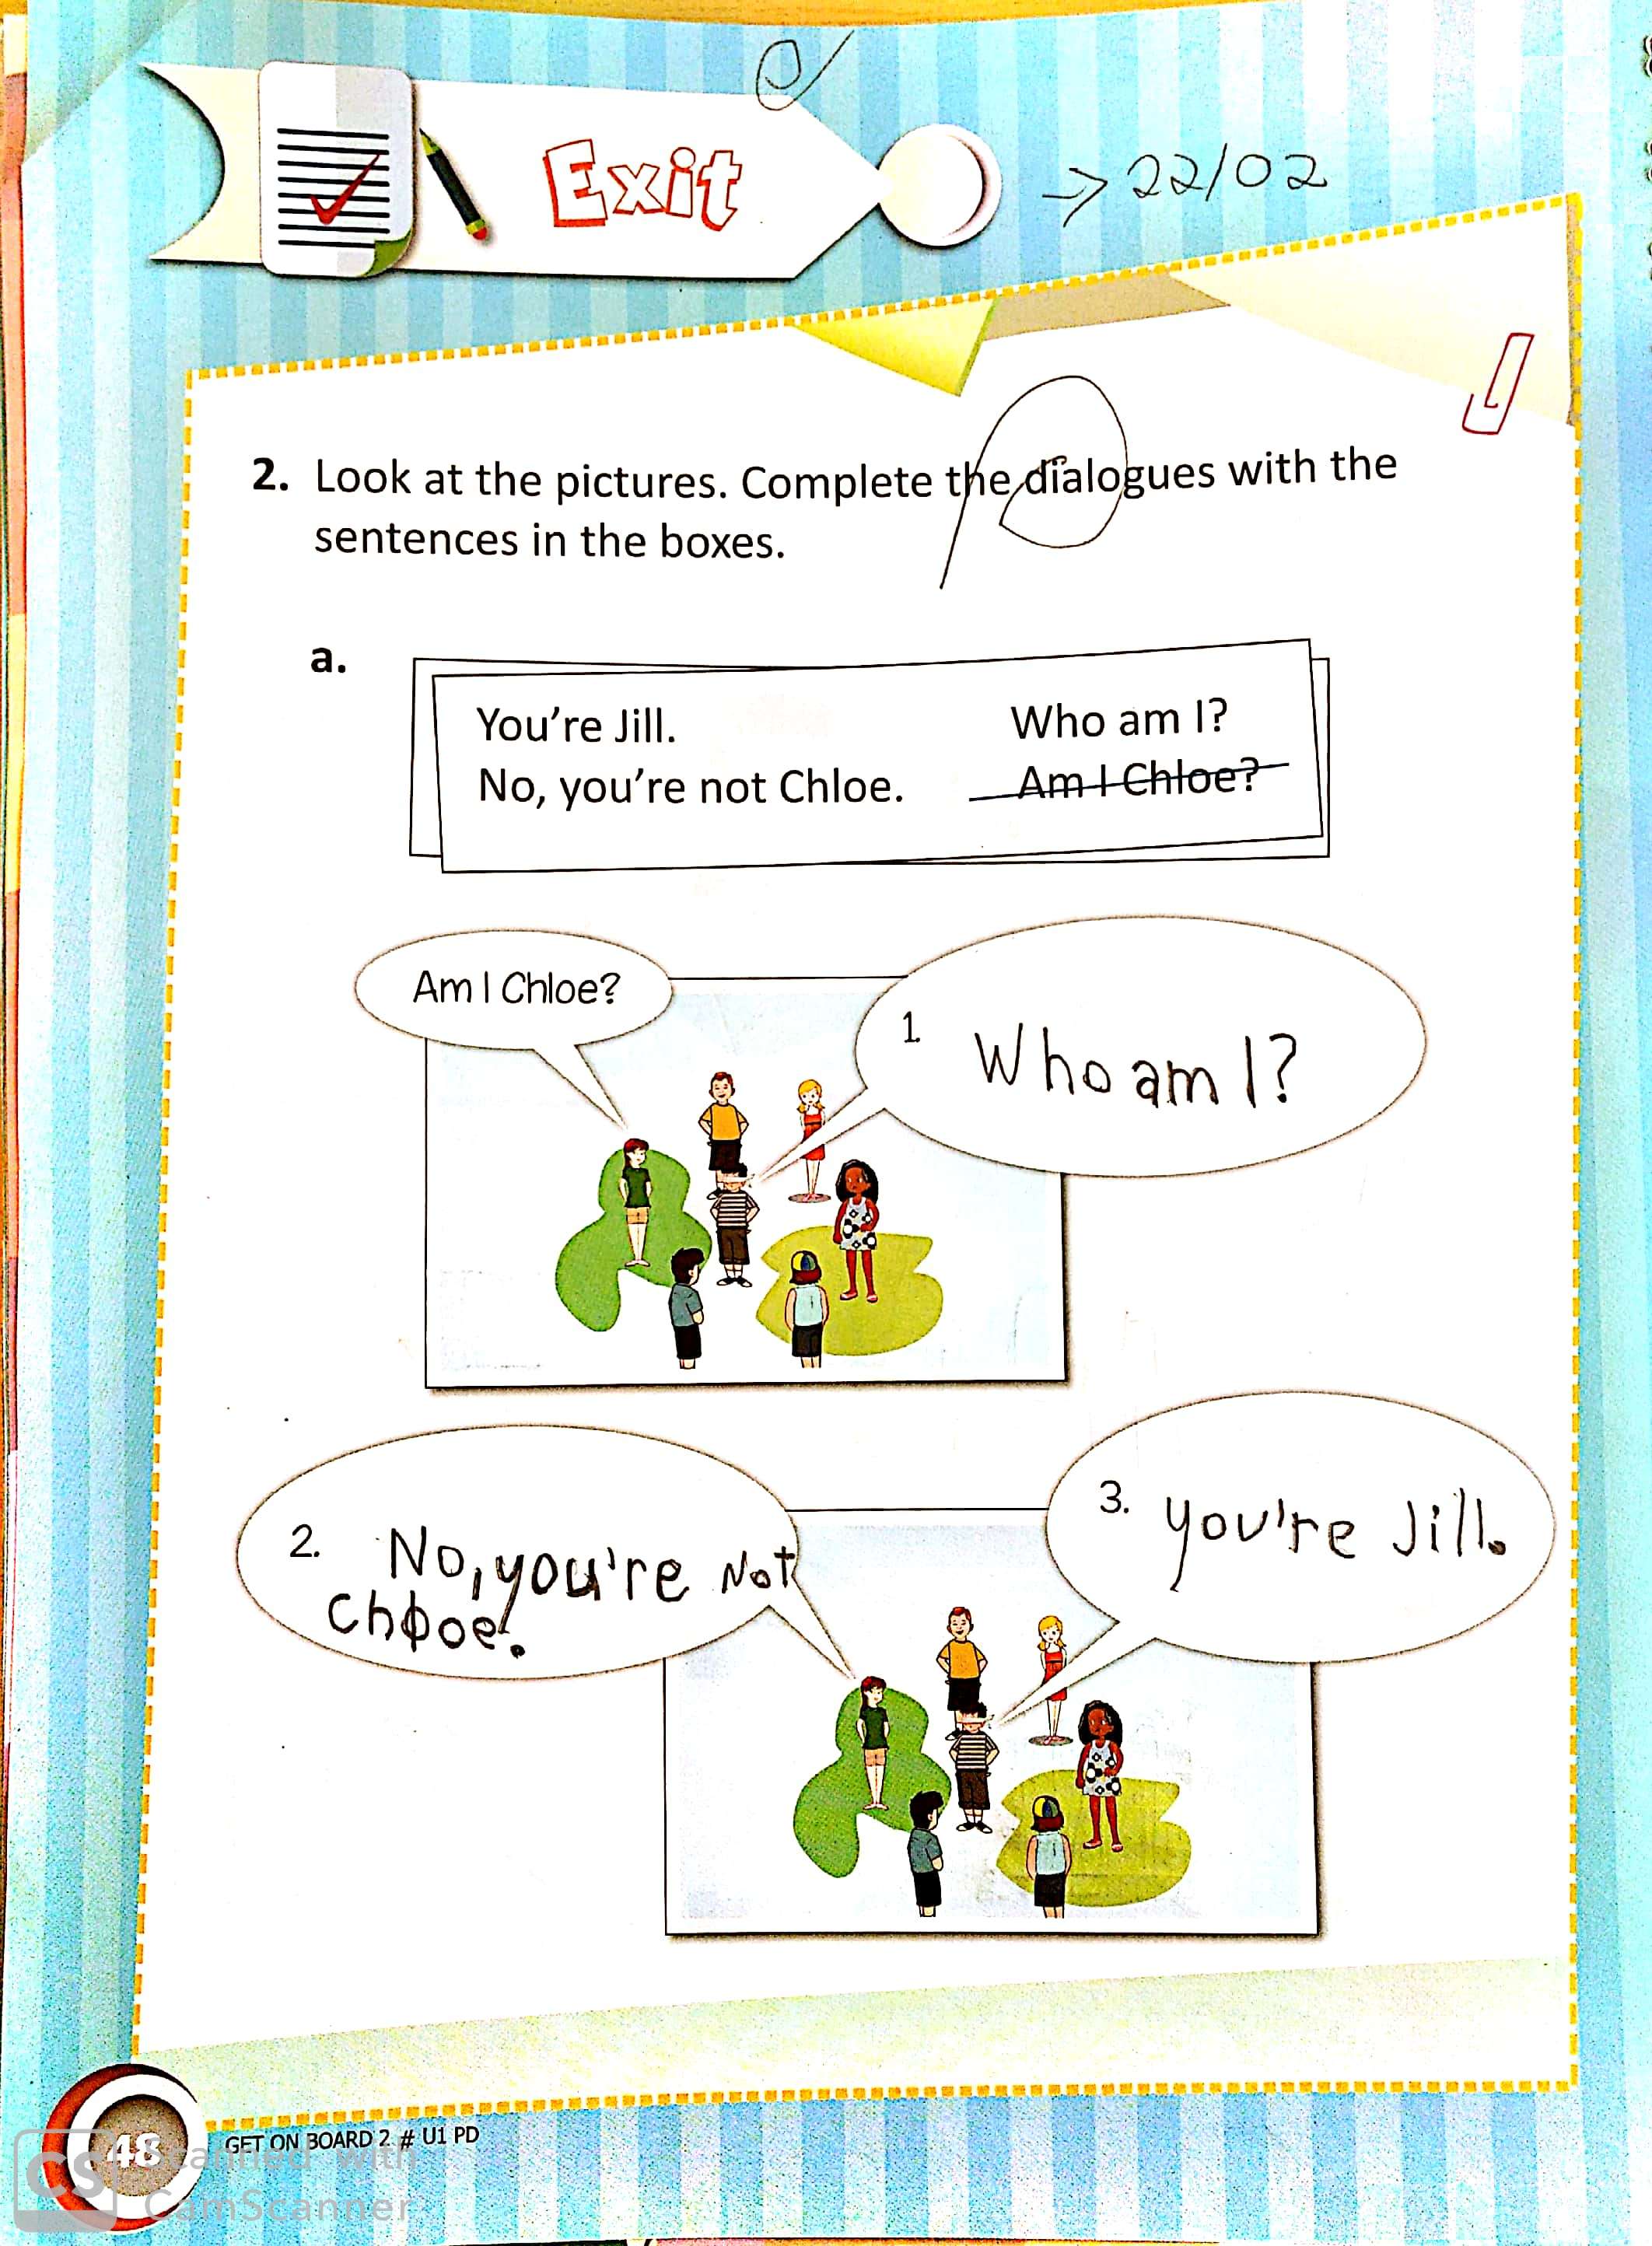 Exit
→ 22/02
2. Look at the pictures. Complete the dialogues with the
sentences in the boxes.
a.
You're Jill.
Who am I?
No, you're not Chloe.
Am I Chloe?
Am I Chloe?
1. Who am I?
2. No, you're Not
chloe.
3. you're Jill.
48
GET ON BOARD 2 # U1 PD
CS Scanned with
CamScanner